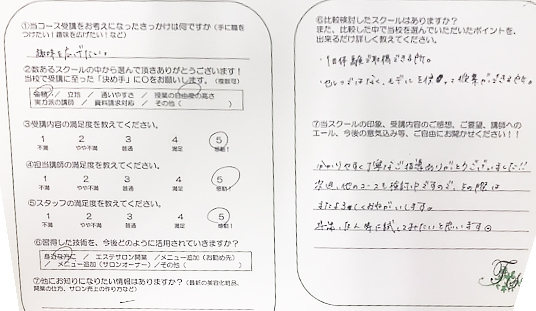 ①当コース受講をお考えになったきっかけは何ですか（手に職を
つけたい！趣味を広げたい！など）
趣味を広げたい。
②数あるスクールの中から選んで頂きありがとうございます！
当校で受講に至った「決め手」に○をお願いします。（複数可）
金額 ／ 立地 ／ 通いやすさ ／ 授業の自由度の高さ
実力派の講師 ／ 資料請求対応 ／ その他（ ）
③受講内容の満足度を教えてください。
1 2 3 4 5
不満 やや不満 普通 満足 感動！
④担当講師の満足度を教えてください。
1 2 3 4 5
不満 やや不満 普通 満足 感動！
⑤スタッフの満足度を教えてください。
1 2 3 4 5
不満 やや不満 普通 満足 感動！
⑥習得した技術を、今後どのように活用されていきますか？
身近な方に ／ エステサロン開業 ／メニュー追加（お勤め先）
／ メニュー追加（サロンオーナー）／その他（ ）
⑦他にお知りになりたい情報はありますか？（最新の美容化粧品、
開業の仕方、サロン売上の作り方など）
⑥比較検討したスクールはありますか？
また、比較した中で当校を選んでいただいたポイントを、
出来るだけ詳しく教えてください。
・1日で
・なく、モデルを使って授業ができる所。
⑦当スクールの印象、受講内容のご感想、ご要望、講師への
エール、今後の意気込み等、ご自由にお聞かせください！！
わかりやすく丁寧なご指導ありがとうございました!!
次回、他のコースも検討中ですので、その際は
またよろしくお願いします。
試してみたいと思います